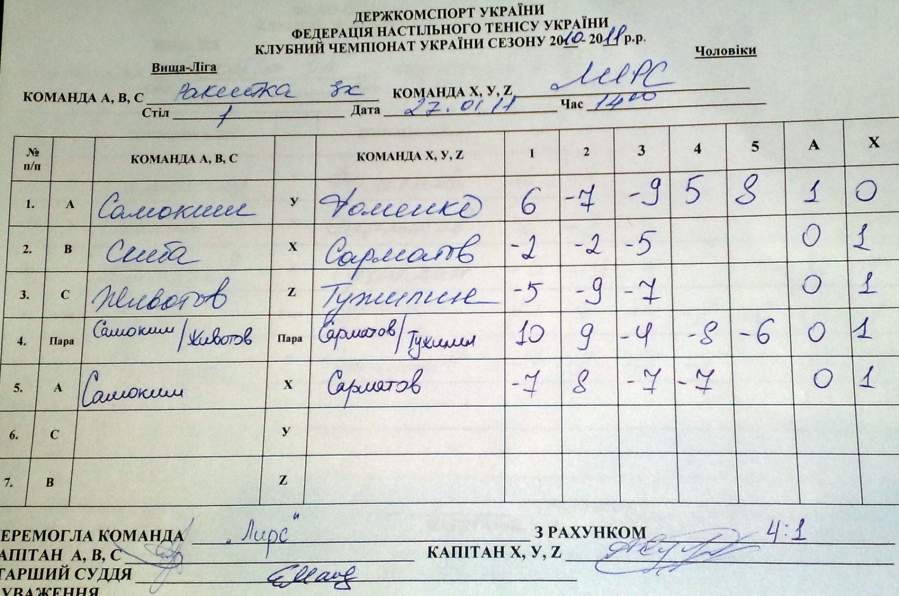 ДЕРЖКОМСПОРТ УКРАЇНИ
ФЕДЕРАЦІЯ НАСТІЛЬНОГО ТЕНІСУ УКРАЇНИ
КЛУБНИЙ ЧЕМПІОНАТ УКРАЇНИ СЕЗОНУ 2010-2011 р.р.
Вища-Ліга Чоловіки
КОМАНДА А, В, С Ракетка КОМАНДА X, У, Z ЛИРС
Стіл 1 Дата 27.01.11 Час 14 00
№ п/п КОМАНДА А, В, С КОМАНДА X, У, Z 1 2 3 4 5 А X
1. А Самокиш У Фоменко 6 -7 -9 5 8 1 0
2. В Сита X Сарматов -2 -2 -5 0 1
3. С Животов Z Тужилин -5 -9 -7 0 1
4. Пара Самокиш/Животов Пара Сарматов/Тужилин 10 9 -4 -8 -6 0 1
5. А Самокиш X Сарматов -7 8 -7 -7 0 1
6. С У
7. В Z
ЕРЕМОГЛА КОМАНДА „Лирс“ З РАХУНКОМ 4:1
АПІТАН А, В, С КАПІТАН X, У, Z
ТАРШИЙ СУДДЯ
УВАЖЕННЯ